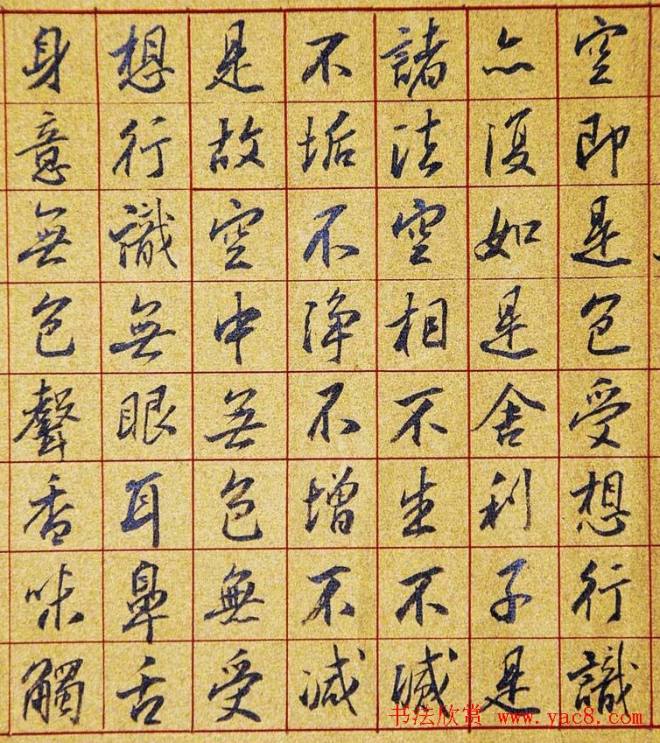 空即是色受想行識
亦復如是舍利子是
諸法空相不生不滅
不垢不净不增不減
是故空中無色無受
想行識無眼耳鼻舌
身意無色聲香味觸
书法欣赏 www.yac8.com